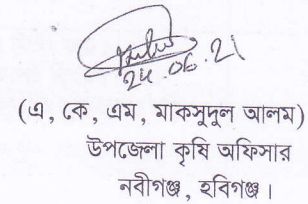 24.06.21
(এ, কে, এম, মাকসুদুল আলম)
উপজেলা কৃষি অফিসার
নবীগঞ্জ, হবিগঞ্জ।